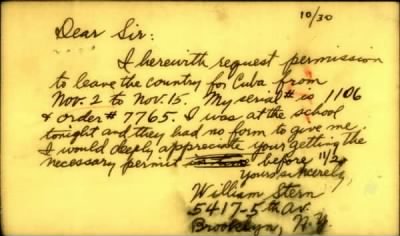 10/30
Dear Sir:
I herewith request permission
to leave the country for Cuba from
Nov. 2 to Nov. 15. My serial # is 1106
& order # 7765. I was at the school
tonight and they had no form to give me.
I would deeply appreciate your getting the
necessary permit before 11/2.
Yours sincerely,
William Stern
5417-5th Av.
Brooklyn, N.Y.